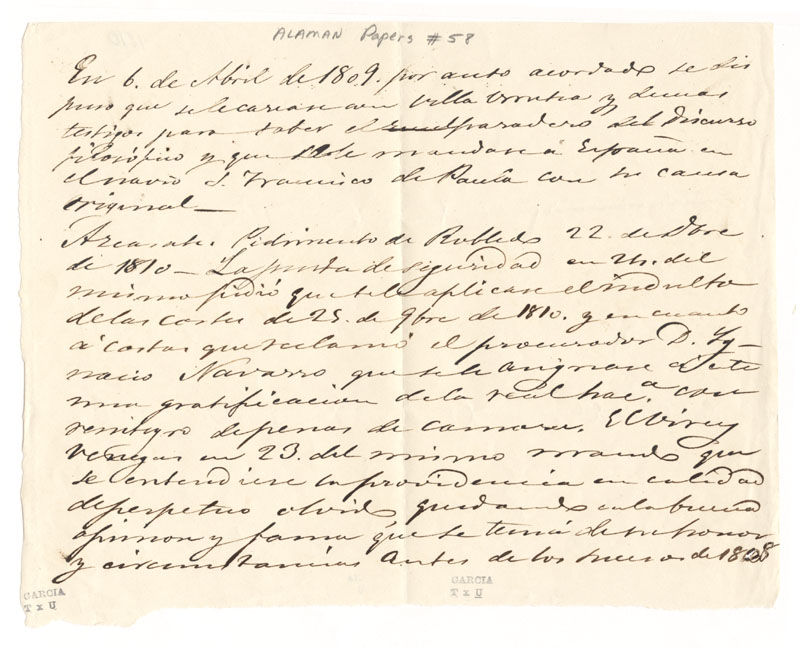 ALAMAN Papers #58
En 6. de Abril de 1809. por auto acordado se dis
puso que se le carease con Villa Urrutia y demas
testigos para saber el paradero del Discurso
filosófico y que se le mandase á España en
el navio S. Francisco de Paula con su causa
original—
Azcarate. Pedimento de Robledo 22. de Dbre
de 1810— La junta de seguridad en 24. del
mismo pidió que se le aplicase el indulto
de las cortes de 25. de 9bre de 1810. y en cuanto
á costas que reclamó el procurador D. Yg-
nacio Navarro que se le asignase á este
una gratificacion de la real hac.a con
reintegro de penas de camara. El Virey
Venegas en 23. del mismo mandó que
se entendiese la providencia en calidad
de perpetuo olvido quedando en la buena
opinion y fama que se tenia de su honor
y circunstancias antes de los sucesos de 1808
GARCIA
T x U
GARCIA
T x U